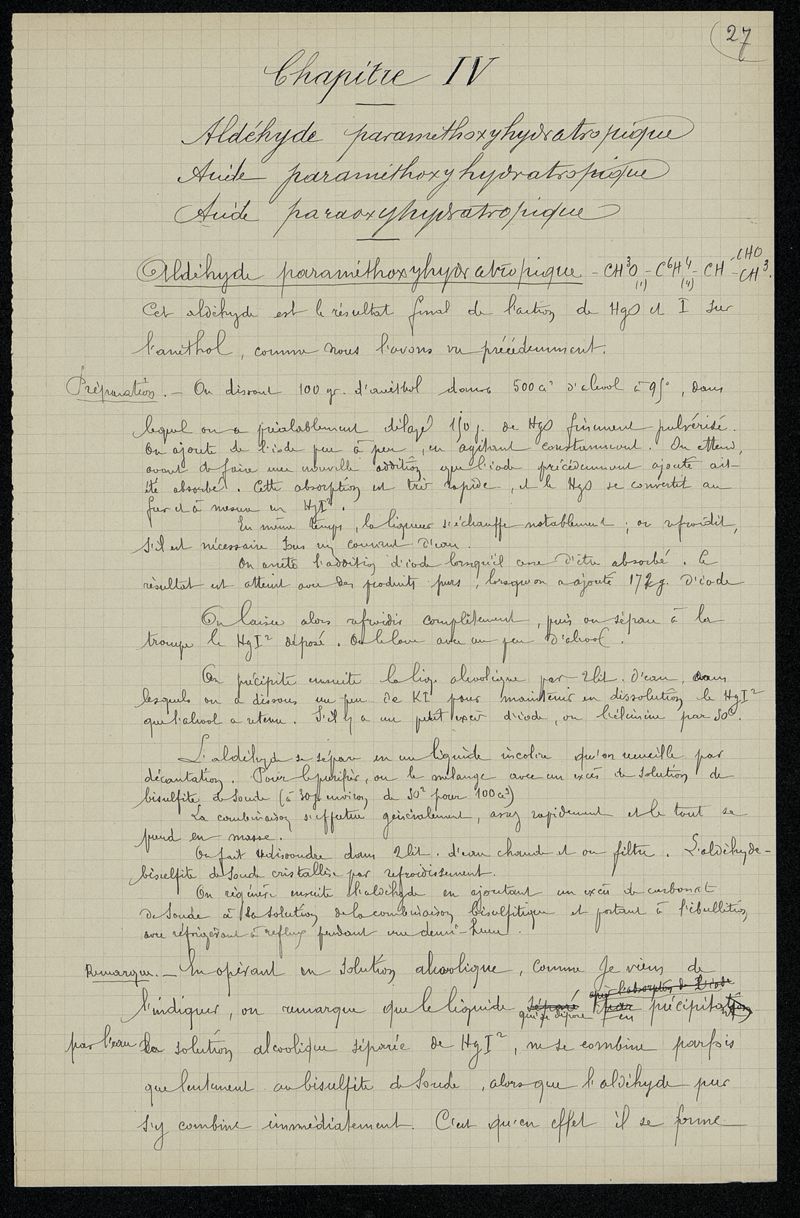 27
Chapitre IV
Aldéhyde paraméthoxyhydratropique
Acide paraméthoxyhydratropique
Acide paraoxyhydratropique
Aldéhyde paraméthoxyhydratropique - CH³O - C⁶H⁴ - CH - CHO
(1) (4) - CH³.
Cet aldéhyde est le résultat final de l'action de HgO et I sur
l'anéthol, comme nous l'avons vu précédemment.
Préparation. — On dissout 100 gr. d'anéthol dans 500 cc³ d'alcool à 95°, dans
lequel on a préalablement délayé 150 g. de HgO finement pulvérisé.
On ajoute de l'iode peu à peu, en agitant constamment. On attend,
avant de faire une nouvelle addition que l'iode précédemment ajouté ait
été absorbé. Cette absorption est très rapide, et le HgO se convertit au
fur et à mesure en HgI².
En même temps, la liqueur s'échauffe notablement ; on refroidit,
s'il est nécessaire sous un courant d'eau.
On arrête l'addition d'iode lorsqu'il cesse d'être absorbé. Le
résultat est atteint avec des produits purs, lorsqu'on a ajouté 172 g. d'iode
On laisse alors refroidir complètement, puis on sépare à la
trompe le HgI² déposé. On le lave avec un peu d'alcool.
On précipite ensuite la liq. alcoolique par 2 lit. d'eau, dans
lesquels on a dissous un peu de KI pour maintenir en dissolution le HgI²
que l'alcool a retenu. S'il y a un petit excès d'iode, on l'élimine par SO².
L'aldéhyde se sépare en un liquide incolore qu'on recueille par
décantation. Pour le purifier, on le mélange avec un excès de solution de
bisulfite de soude (à 30 gr environ de SO² pour 100 cc³)
La combinaison s'effectue généralement, assez rapidement et le tout se
prend en masse.
On fait redissoudre dans 2 lit. d'eau chaude et on filtre. L'aldéhyde-
bisulfite de soude cristallise par refroidissement.
On régénère ensuite l'aldéhyde en ajoutant un excès de carbonate
de soude à la solution de la combinaison bisulfitique et portant à l'ébullition
avec réfrigérant à reflux pendant une demi-heure.
Remarque. — En opérant en solution alcoolique, comme je viens de
après l'absorption de l'iode
l'indiquer, on remarque que le liquide séparé par précipitation
qui se dépose en
par l'eau la solution alcoolique séparée de HgI², ne se combine parfois
que lentement au bisulfite de soude, alors que l'aldéhyde pur
s'y combine immédiatement. C'est qu'en effet il se forme